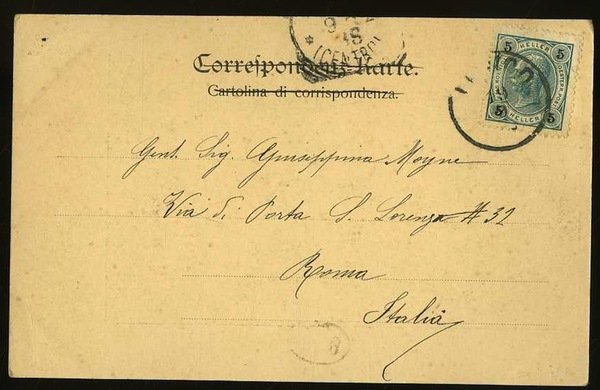 (CENTRO)
Correspondenz-Karte.
Cartolina di corrispondenza.
5 HELLER 5
5 HELLER 5
Gent. Sig. Giuseppina Moyne
Via di Porta S. Lorenzo # 32
Roma
Italia